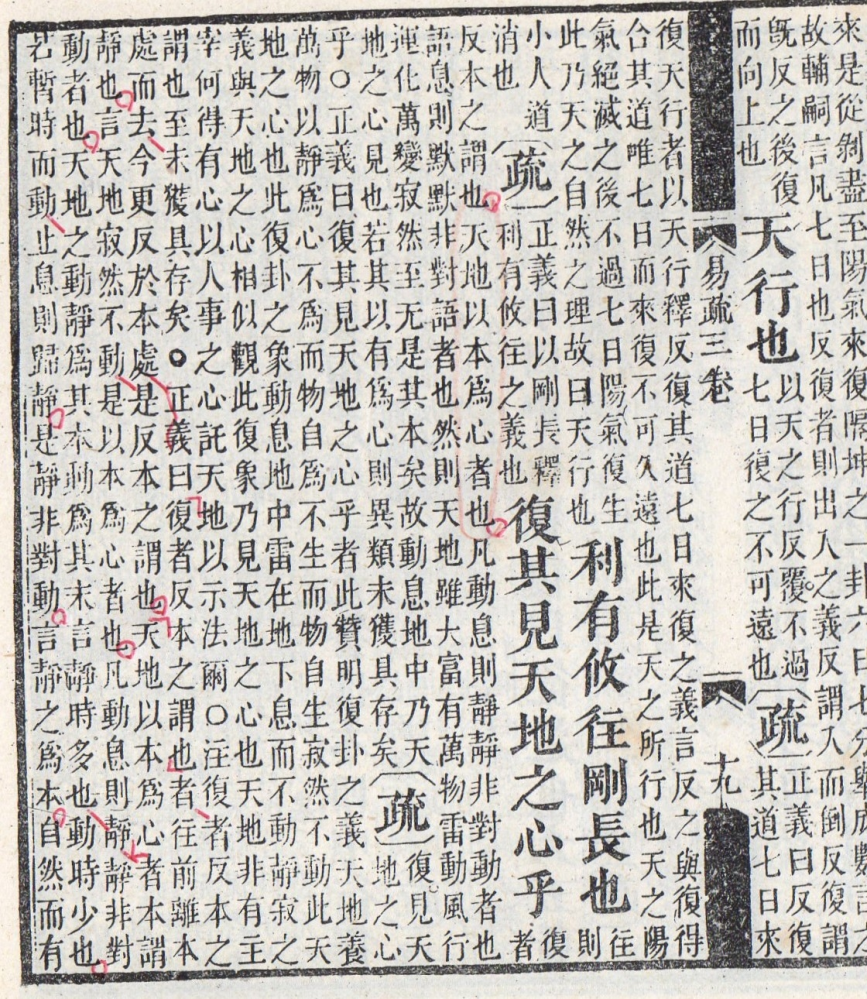 來是從剝盡至陽氣來復隔坤之一卦六日七分舉成數言之
故輔嗣言凡七日也反復者則出入之義反謂入而倒反復謂
旣反之後復
而向上也
天行也
以天之行反覆不過
七日復之不可遠也
〔疏〕
正義曰反復
其道七日來
易疏三卷
十九
復天行者以天行釋反復其道七日來復之義言反之與復得
合其道唯七日而來復不可久遠也此是天之所行也天之陽
氣絕滅之後不過七日陽氣復生
此乃天之自然之理故曰天行也
利有攸往剛長也
往
則
小人道
消也
〔疏〕
正義曰以剛長釋
利有攸往之義也
復其見天地之心乎
復
者
反本之謂也天地以本爲心者也凡動息則靜靜非對動者也
語息則默默非對語者也然則天地雖大富有萬物雷動風行
運化萬變寂然至无是其本矣故動息地中乃天
地之心見也若其以有爲心則異類未獲具存矣
〔疏〕
復見天
地之心
乎○正義曰復其見天地之心乎者此贊明復卦之義天地養
萬物以靜爲心不爲而物自爲不生而物自生寂然不動此天
地之心也此復卦之象動息地中雷在地下息而不動靜寂之
義與天地之心相似觀此復象乃見天地之心也天地非有主
宰何得有心以人事之心託天地以示法爾○注復者反本之
謂也至未獲具存矣○正義曰復者反本之謂也者往前離本
處而去今更反於本處是反本之謂也天地以本爲心者本謂
靜也言天地寂然不動是以本爲心者也凡動息則靜靜非對
動者也天地之動靜爲其本動爲其末言靜時多也動時少也
若暫時而動止息則歸靜是靜非對動言靜之爲本自然而有